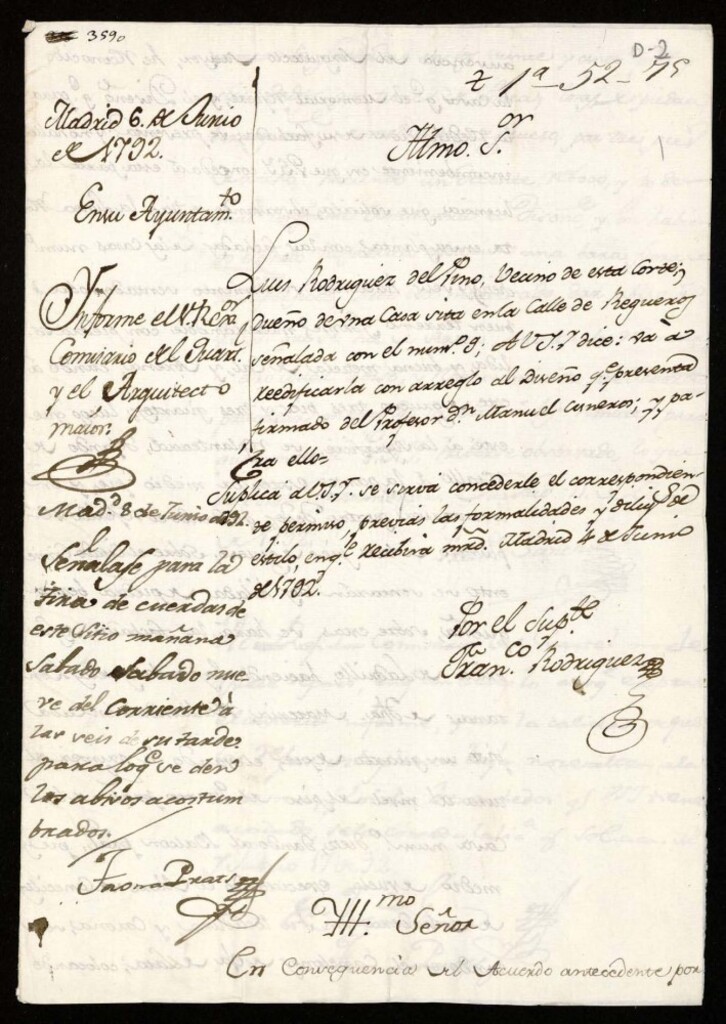 3590
D-2
1ª-52-75
Madrid 6. de Junio
de 1792.
En su Ayuntam.to
Informe el S. Rexor
Comisario del Quart.
y el Arquitecto
maior.
Mad.d 8 de Junio de 1792.
Señalase para la
tira de cuerdas de
este sitio mañana
Sabado Sabado nue
ve del corriente à
las seis de su tarde:
para lo q.e se den
los abisos acostum
brados.
Prats
Illmo. S.or
Luis Rodriguez del Pino, Vecino de esta Corte, y
dueño de una Casa sita en la Calle de Regueros
señalada con el num.o 9; A V.S.I. dice: và à
reedificarla con arreglo al Diseño q.e presenta
firmado del Profesor d.n Manuel Cisneros; y pa-
ra ello=
Suplica a V.S.I. se sirva concederle el correspondien-
te permiso, previas las formalidades y diliq.s de
estilo, en q.e recibirà mrd. Madrid 4 de Junio
de 1792.
Por el Sup.te
Fran.co Rodriguez
Ill.mo Señor
En Consequencia del Acuerdo antecedente por